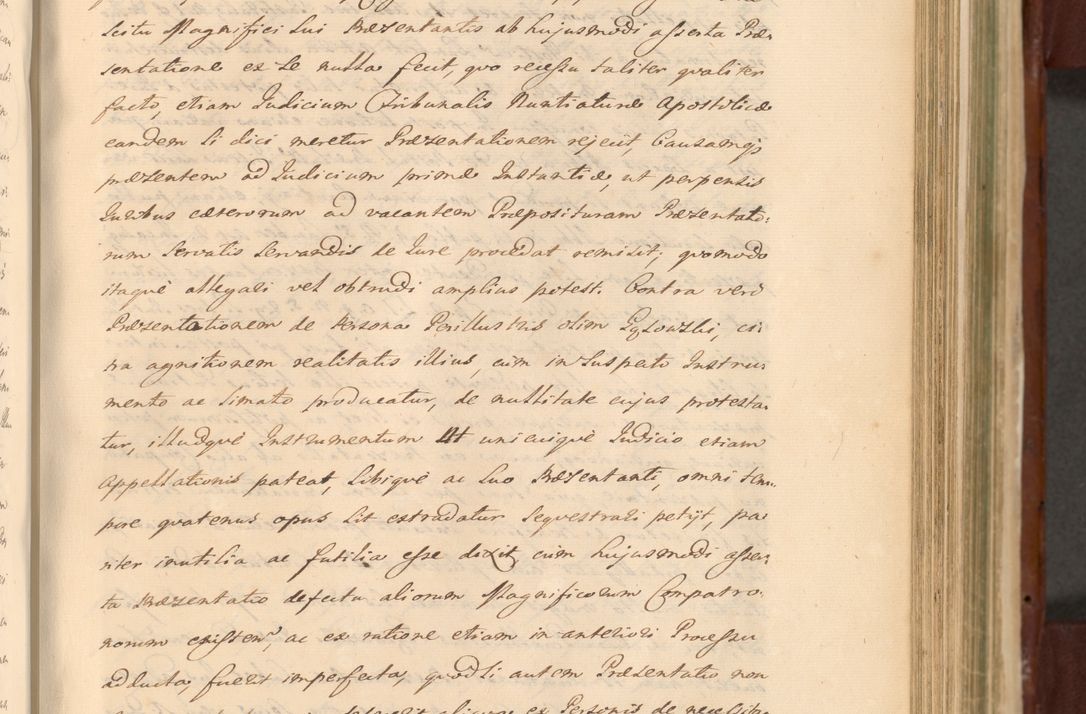 scitu Magnifici Sui Præsentantis ab hujusmodi asserta Præ-
sentatione ex se nulla fecit, quo recessu taliter qualiter
facto, etiam Judicium Tribunalis Nuntiaturæ Apostolicæ
eandem si dici meretur Præsentationem rejecit, Causamq;
præsentem ad Judicium primæ Instantiæ, ut perpensis
Juribus cæterorum ad vacantem Præposituram Præsentato:
rum servatis servandis de Jure procedat remisit; quomodo
itaquè allegari vel obtrudi amplius potest. Contra verò
Præsentationem de Persona Perillustris olim ci:
tra agnitionem realitatis illius, cùm in suspecto Instru:
mento ac limato producatur, de nullitate cujus protesta:
tur, illudquè Instrumentum ut unicuiquè Judicio etiam
Appellationis pateat, sibiquè ac suo Præsentanti, omni tem:
pore quatenus opus sit extradatur sequestrari petijt, pa:
riter inutilia ac futilia esse dixit cùm hujusmodi asser:
ta Præsentatio defectu aliorum Magnificorum Compatro:
norum existen', ac ex ratione etiam in anteriori Processu
adducta, fuerit imperfecta, quodsi autem Præsentatio non
aliquæ ex Personis de necessita